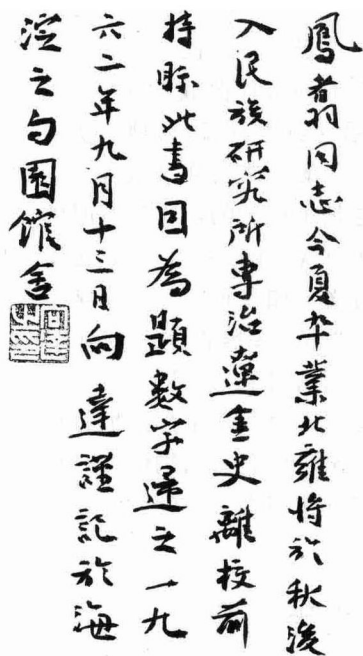 鳳翥同志今夏卒業北雍將於秋後
入民族研究所專治遼金史離校前
持眎此書因為題數字歸之一九
六二年九月十三日向達謹記於海
淀之勺園館舍
向達之印